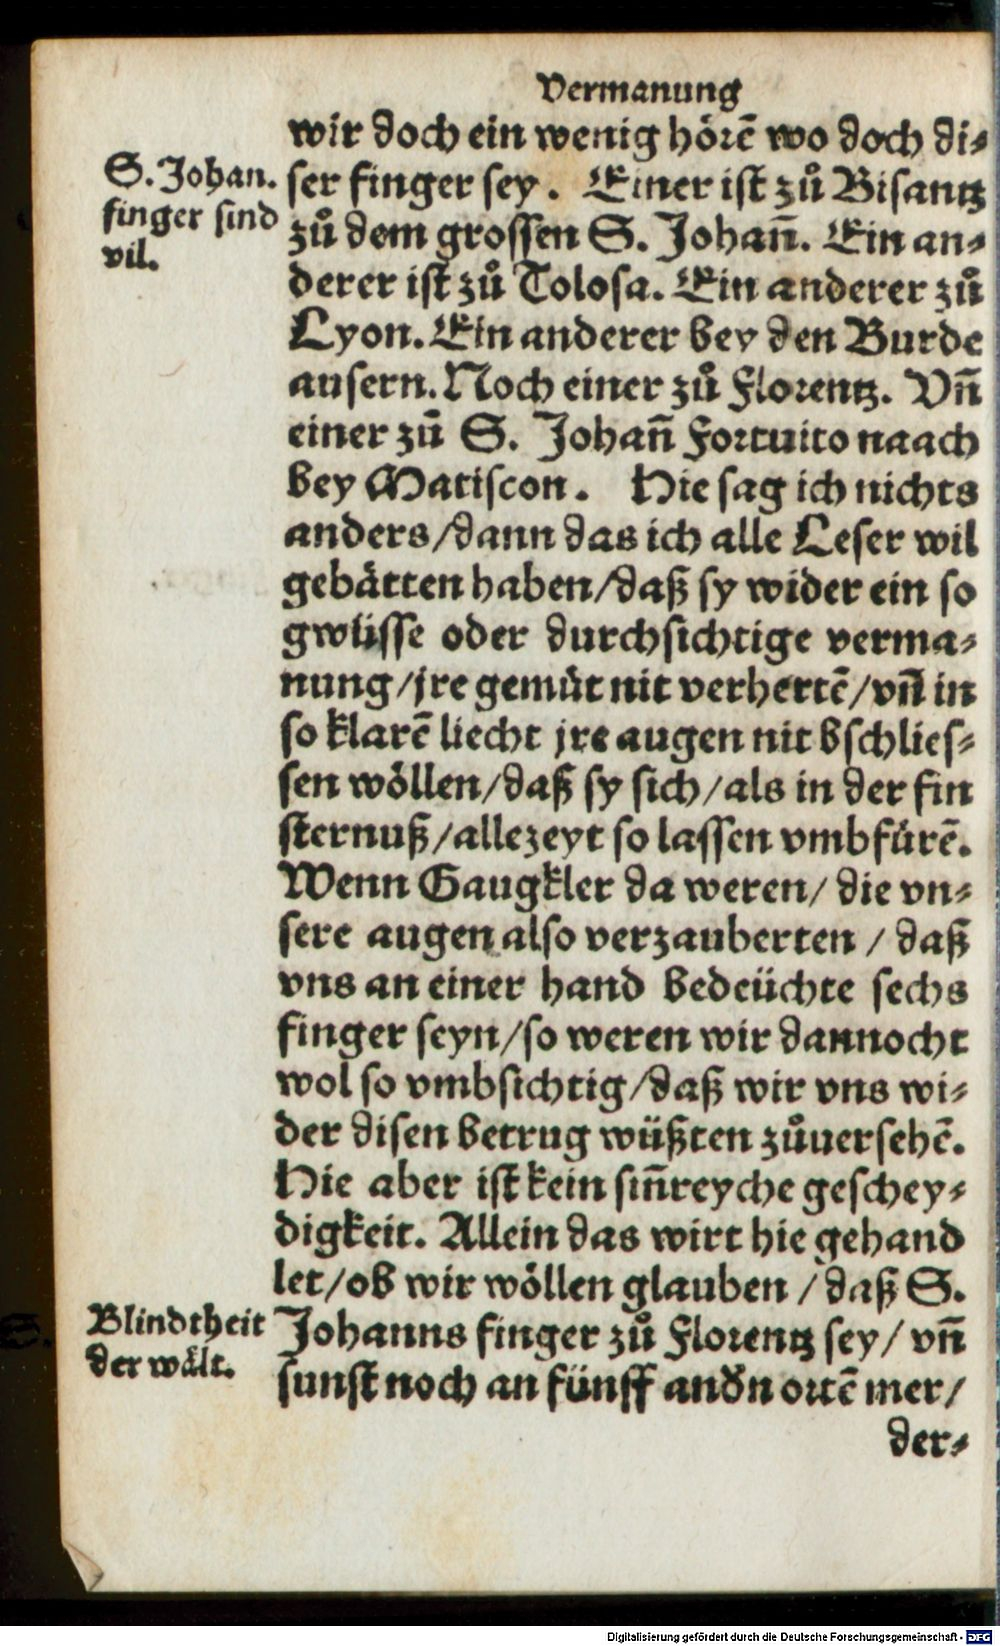 Vermanung
wir doch ein wenig hörē wo doch di⸗
S. Johan.
finger sind
vil.
ser finger sey. Einer ist zů Bisantz
zů dem grossen S. Johan̄. Ein an⸗
derer ist zů Tolosa. Ein anderer zů
Lyon. Ein anderer bey den Burde
ausern. Noch einer zů Florentz. Vn̄
einer zů S. Johan̄ Fortuito naach
bey Matiscon. Hie sag ich nichts
anders/dann das ich alle Leser wil
gebätten haben/daß sy wider ein so
gwüsse oder durchsichtige verma⸗
nung/jre gemüt nit verhertē/vn̄ in
so klarē liecht jre augen nit bschlies⸗
sen wöllen/daß sy sich/als in der fin
sternuß/allezeyt so lassen vmbfürē.
Wenn Gaugkler da weren/ die vn⸗
sere augen also verzauberten / daß
vns an einer hand bedeüchte sechs
finger seyn/so weren wir dannocht
wol so vmbsichtig/daß wir vns wi⸗
der disen betrug wüßten zůuersehē.
Hie aber ist kein sin̄reyche geschey⸗
digkeit. Allein das wirt hie gehand
let/ob wir wöllen glauben / daß S.
Blindtheit
der wält.
Johanns finger zů Florentz sey/ vn̄
sunst noch an fünff andn ortē mer/
der⸗
Digitalisierung gefördert durch die Deutsche Forschungsgemeinschaft - DFG